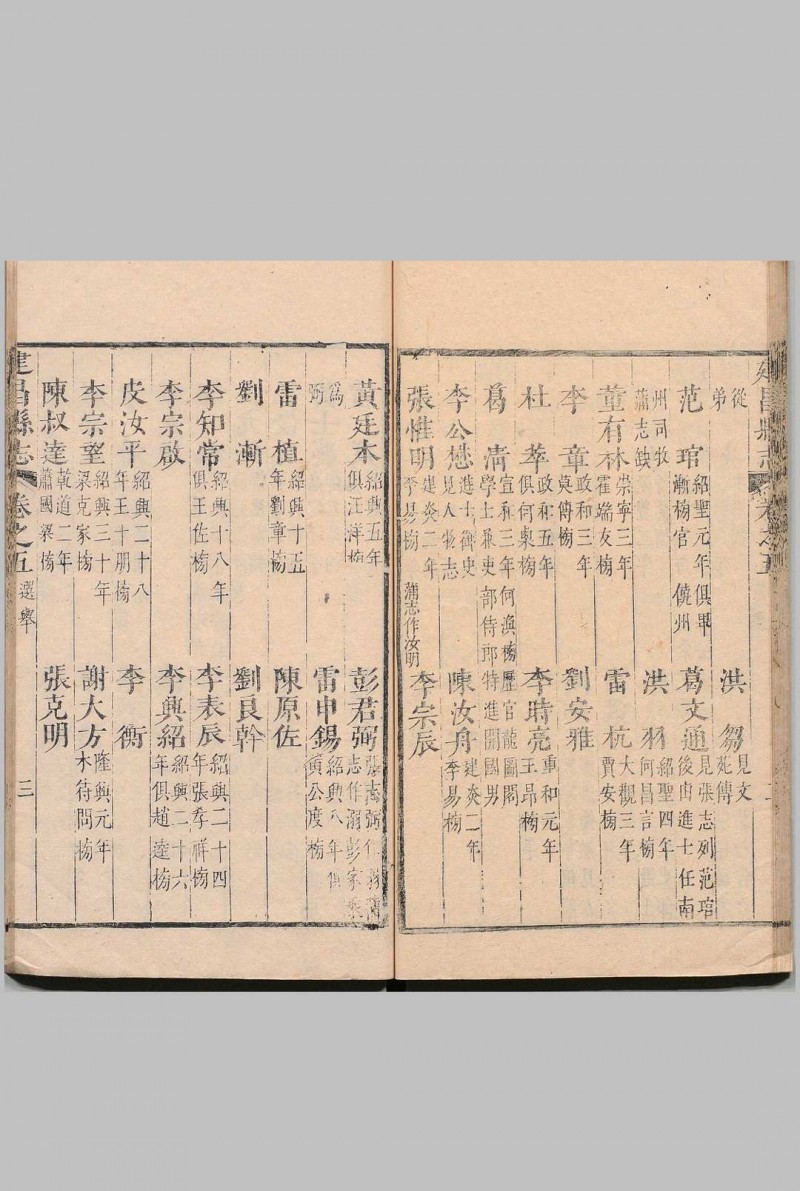 從弟 洪芻見文苑傳
范琯紹聖元年俱畢漸榜官饒州 葛文通見張志列范琯後由進士任南
州司牧蒲志缺 洪羽紹聖四年何昌言榜
董有林崇寧三年霍端友榜 雷杭大觀三年賈安榜
李章政和三年莫儔榜 劉安雅
杜莘政和五年俱何㮚榜 李時亮重和元年王昂榜
葛淸宣和三年何渙榜歷官龍圖閣學士兼吏部侍郎特進開國男
李公懋進士御史見人物志 陳汝舟建炎二年李易榜
張惟明建炎二年李易榜蒲志作汝明 李宗辰
建昌縣志 卷之五
黃廷本紹興五年俱汪洋榜 彭君弼張志弼作溺彭家乘
為弼 雷申錫紹興八年俱黃公度榜
雷植紹興十五年劉章榜 陳原佐
劉漸 劉良幹
李知常紹興十八年俱王佐榜 李表辰紹興二十四年張孝祥榜
李宗啟 李興紹紹興二十六年俱趙逵榜
皮汝平紹興二十八年王十朋榜 李衡
李宗望紹興三十年梁克家榜 謝大方隆興元年木待問榜
陳叔達乾道二年蕭國梁榜 張克明
建昌縣志 卷之五 選舉 三